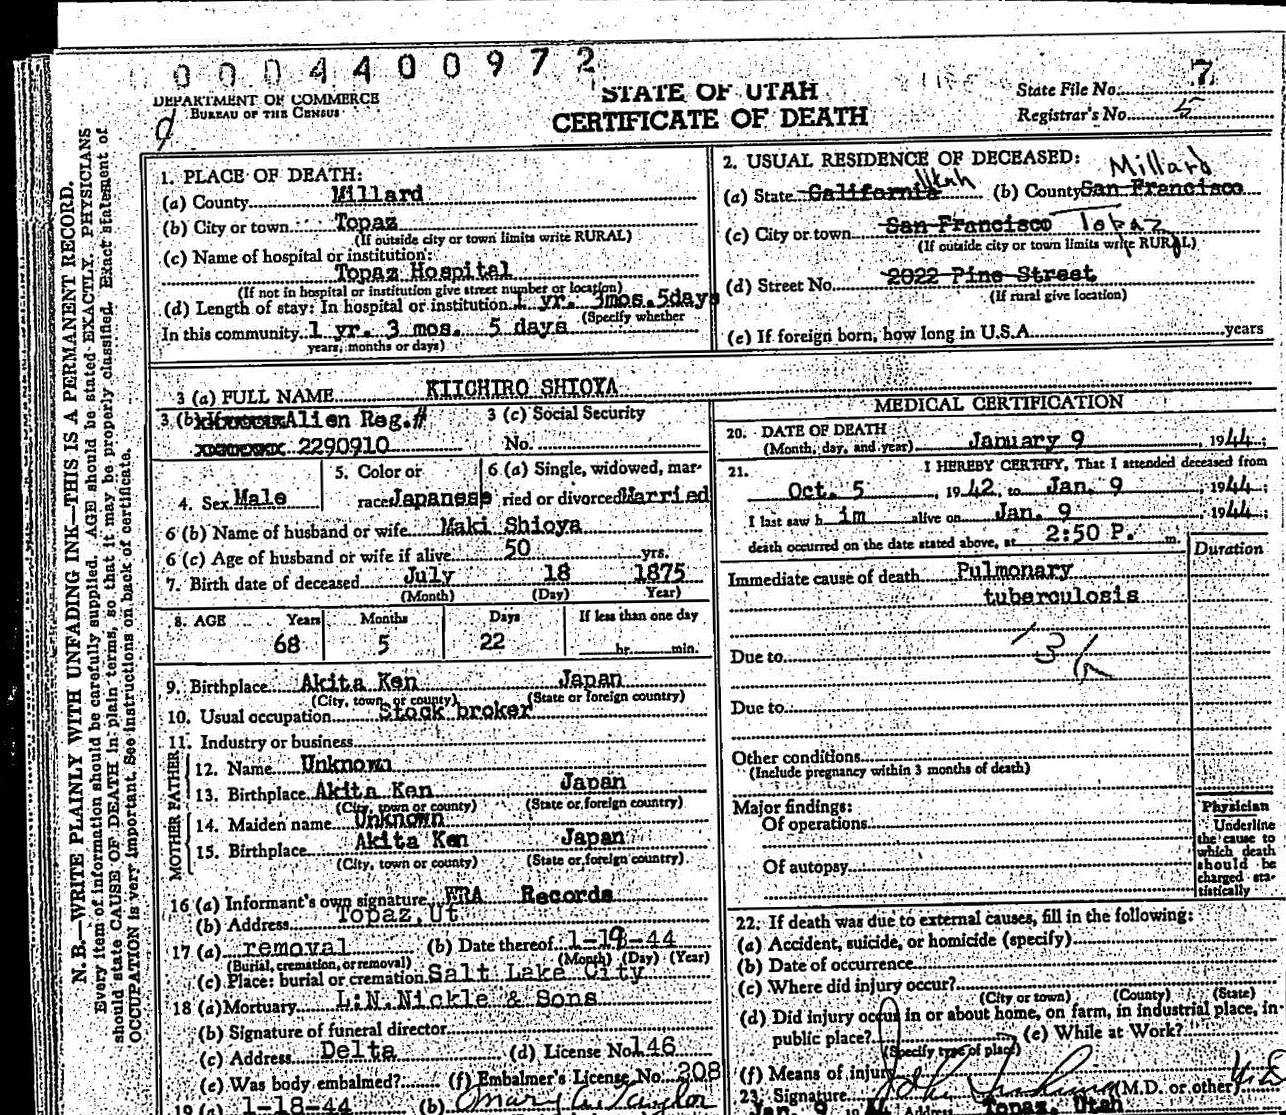 0004400972
STATE OF UTAH
CERTIFICATE OF DEATH
DEPARTMENT OF COMMERCE
BUREAU OF THE CENSUS
State File No. 7
Registrar's No. 5
N. B.—WRITE PLAINLY WITH UNFADING INK—THIS IS A PERMANENT RECORD.
Every item of information should be carefully supplied. AGE should be stated EXACTLY. PHYSICIANS
should state CAUSE OF DEATH in plain terms, so that it may be properly classified. Exact statement of
OCCUPATION is very important. See instructions on back of certificate.
1. PLACE OF DEATH:
(a) County Millard
(b) City or town Topaz
(If outside city or town limits write RURAL)
(c) Name of hospital or institution:
Topaz Hospital
(If not in hospital or institution give street number or location)
(d) Length of stay: In hospital or institution 1 yr. 3mos. 5days
(Specify whether
In this community 1 yr. 3 mos. 5 days
years, months or days)
2. USUAL RESIDENCE OF DECEASED:
(a) State California Utah (b) County San Francisco Millard
(c) City or town San Francisco Topaz
(If outside city or town limits write RURAL)
(d) Street No. 2022 Pine Street
(If rural give location)
(e) If foreign born, how long in U.S.A. years
3 (a) FULL NAME KIICHIRO SHIOYA
3 (b) Alien Reg.#
2290910
3 (c) Social Security
No.
4. Sex Male
5. Color or
race Japanese
6 (a) Single, widowed, mar-
ried or divorced Married
6 (b) Name of husband or wife Maki Shioya
6 (c) Age of husband or wife if alive 50 yrs.
7. Birth date of deceased July 18 1875
(Month) (Day) Year)
8. AGE Years Months Days If less than one day
68 5 22 hr. min.
9. Birthplace Akita Ken Japan
(City, town or county) (State or foreign country)
10. Usual occupation Stock broker
11. Industry or business
FATHER
12. Name Unknown
13. Birthplace Akita Ken Japan
(City, town or county) (State or foreign country)
MOTHER
14. Maiden name Unknown
15. Birthplace Akita Ken Japan
(City, town or county) (State or foreign country)
16 (a) Informant's own signature Records
(b) Address Topaz, Ut
17 (a) removal (b) Date thereof 1-19-44
(Burial, cremation, or removal) (Month) (Day) (Year)
(c) Place: burial or cremation Salt Lake City
18 (a) Mortuary L.N. Nickle & Sons
(b) Signature of funeral director
(c) Address Delta (d) License No. 146
(e) Was body embalmed? (f) Embalmer's License No. 208
19 (a) 1-18-44 (b)
MEDICAL CERTIFICATION
20. DATE OF DEATH
(Month, day, and year) January 9, 1944;
21. I HEREBY CERTIFY, That I attended deceased from
Oct. 5, 1942, to Jan. 9, 1944;
I last saw h im alive on Jan. 9 1944;
death occurred on the date stated above, at 2:50 P. m.
Duration
Immediate cause of death Pulmonary
tuberculosis
Due to
Due to
Other conditions
(Include pregnancy within 3 months of death)
Major findings:
Of operations
Of autopsy
Physician
Underline
the cause to
which death
should be
charged sta-
tistically
22. If death was due to external causes, fill in the following:
(a) Accident, suicide, or homicide (specify)
(b) Date of occurrence
(c) Where did injury occur?
(City or town) (County) (State)
(d) Did injury occur in or about home, on farm, in industrial place, in
public place? (e) While at Work?
(Specify type of place)
(f) Means of injury
23. Signature M.D. or other
Jan. 9 Address Topaz, Utah